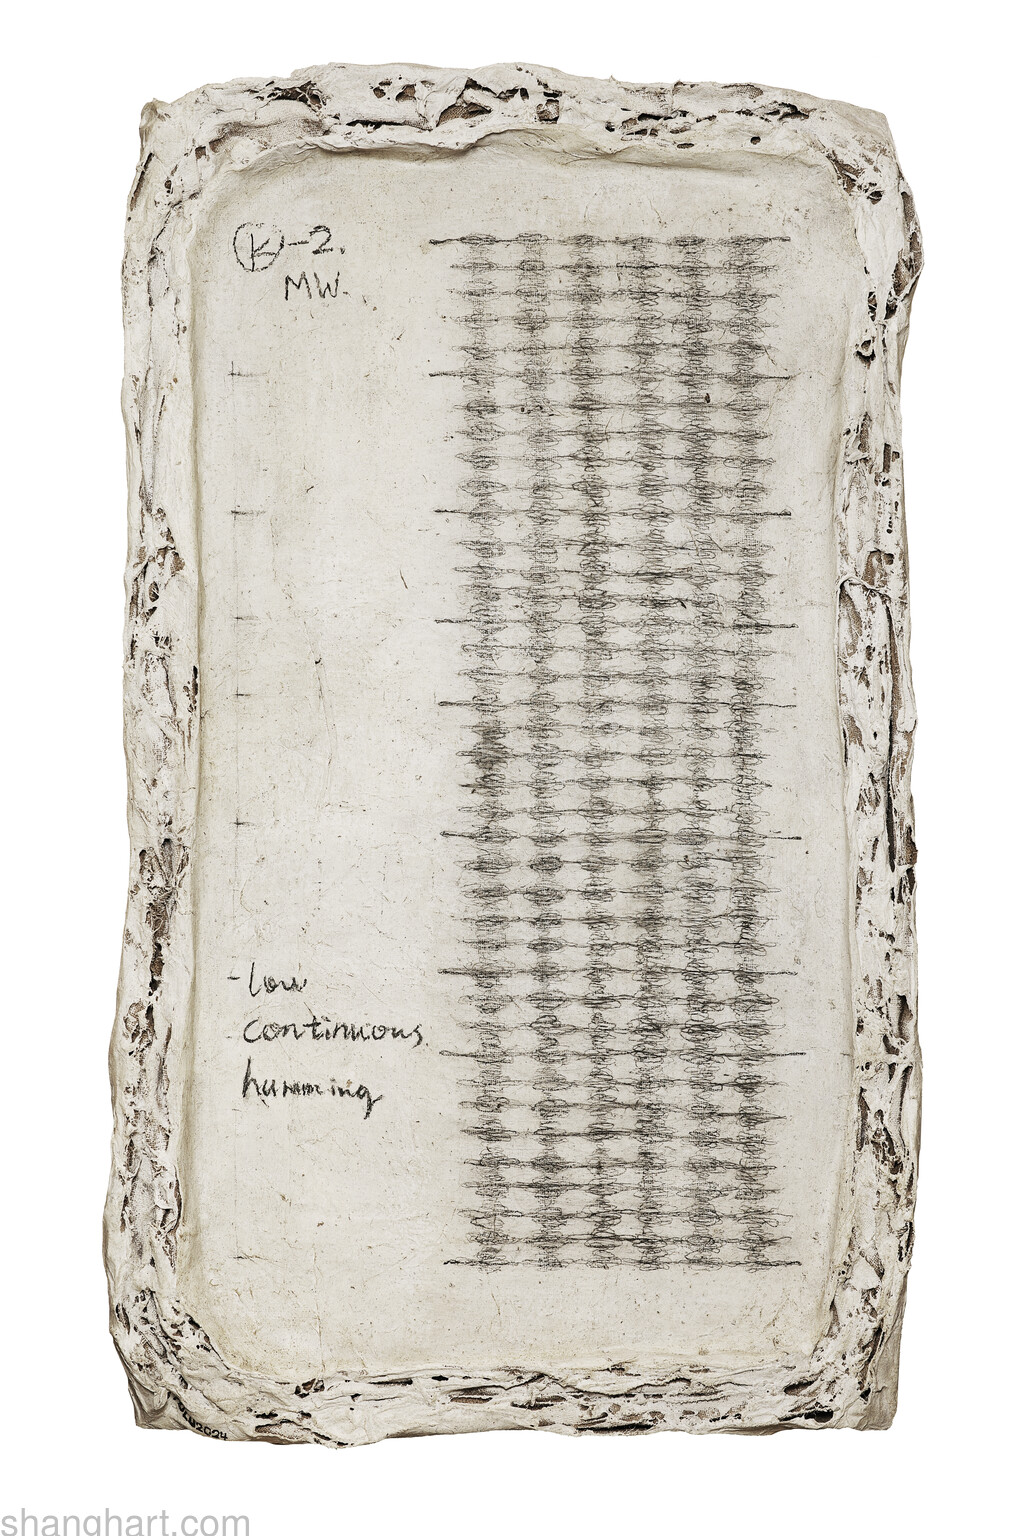 Ⓚ-2.
MW.
-low
continuous
humming
2024
shanghart.com